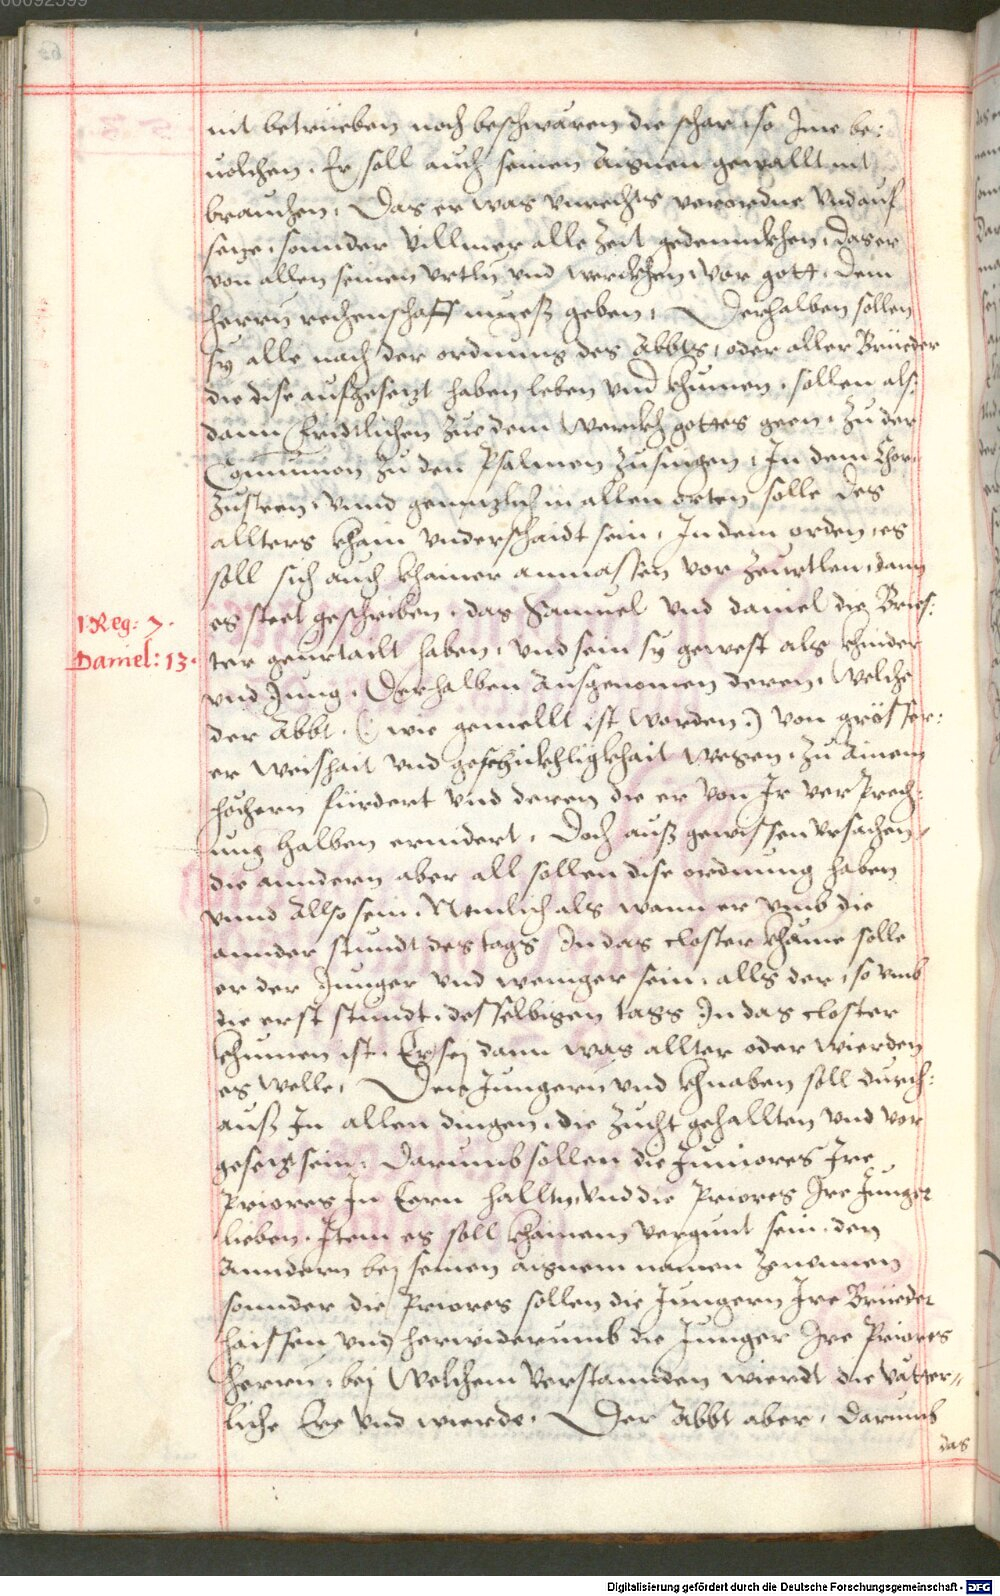 nit betrüeben noch beschwären die schar, so Jme be:
uolchen. Er soll auch seinen aignen gewallt nit
brauchen, Das er was vnrechts verordne vnd auf
seze, sonnder villmer alle Zeit gedennckhen, das er
von allen seinen vrtln vnd werckhen, vor gott, dem
herrn rechenschafft mueß geben, Derhalben sollen
sy alle nach der ordnung des Abbts, oder aller Brüeder
die dise aufgesezt haben leben vnd khumen, sollen als:
dann fridtlichen zue dem werckh gottes geen, zu der
Comunion zu den Psalmen zusingen, In dem Chor
zusteen, vnnd genntzlich in allen orten solle des
allters khain vnderschaidt sein, In dem orden, es
soll sich auch khainer anmassen vor zuurtlen, dann
es steet geschriben, das Samuel vnd Daniel die Bries:
ter geurtailt haben, vnd sein sy gewest als khinder
vnd Jung, Derhalben ausgenomen deren, welche
der Abbt, (: wie gemellt ist worden :) von grösser:
er weishait vnd geschickhligkhait wegen, zu ainem
höchern fürdert vnd deren die er von Jr verprech:
ung halben ernidert, Doch auß gewissen vrsachen,
die anndern aber all sollen dise ordnung haben
vnnd allso sein, Nemlich als wann er vmb die
annder stundt des tags In das closter khäme solle
er der Junger vnd weniger sein, alls der, so vmb
die erst stundt, desselbigen tags In das closter
khumen ist, Er sej dann was allter oder wierden
es welle, Den Jungern vnd khnaben soll durch:
auß In allen dingen, die Zucht gehallten vnd vor
gesezt sein, Darumb sollen die Juniores Jre
Priores In Eern halltn, vnd die Priores Jre Junger
lieben. Item es soll khainem vergunt sein, den
Anndern bej seinem aignem namen zenennen
sonnder die Priores sollen die Jungern Jre Brüeder
haissen vnd herwiderumb die Junger Jre Priores
herrn, bej welchem verstannden wierdt die vätter,,
liche Ere vnd wierde, Der Abbt aber, darumb
das
1. Reg: 7.
Daniel: 13.
Digitalisierung gefördert durch die Deutsche Forschungsgemeinschaft - DFG